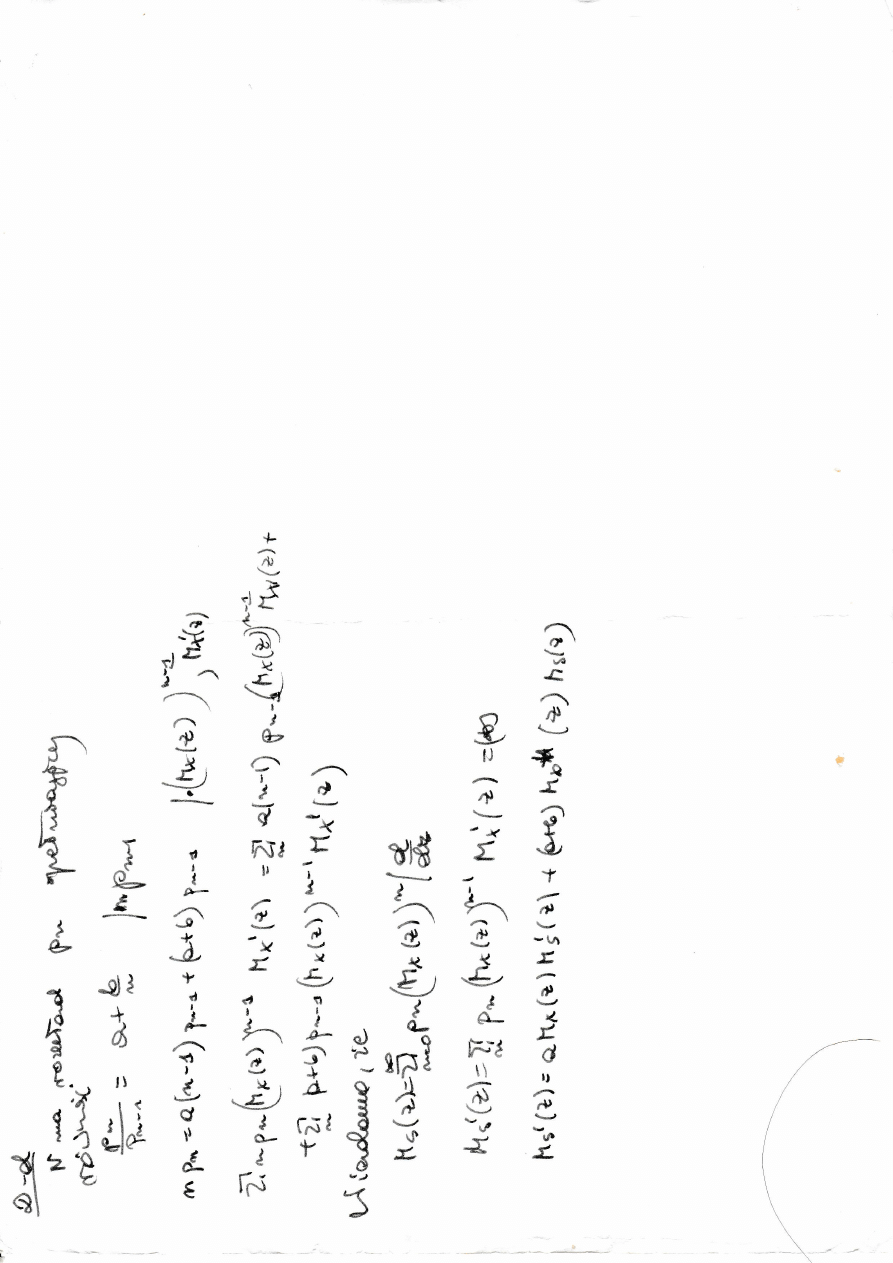 D-d
N ma rozkład pn spełniający
równość
pn/pn-1 = a + b/n |npn-1
npn = a(n-1)pn-1 + (a+b)pn-1 |·(Mx(z))^n-1, Mx'(z)
∑n npn(Mx(z))^n-1 Mx'(z) = ∑n a(n-1) pn-1(Mx(z))^n-1 Mx'(z) +
+ ∑n (a+b)pn-1(Mx(z))^n-1 Mx'(z)
Wiadomo, że
Ms(z) = ∑n=0^∞ pn(Mx(z))^n | d/dz
Ms'(z) = ∑n pn(Mx(z))^n-1 Mx'(z) =
Ms'(z) = aMx(z)Ms'(z) + (a+b)Mx'(z)Ms(z)